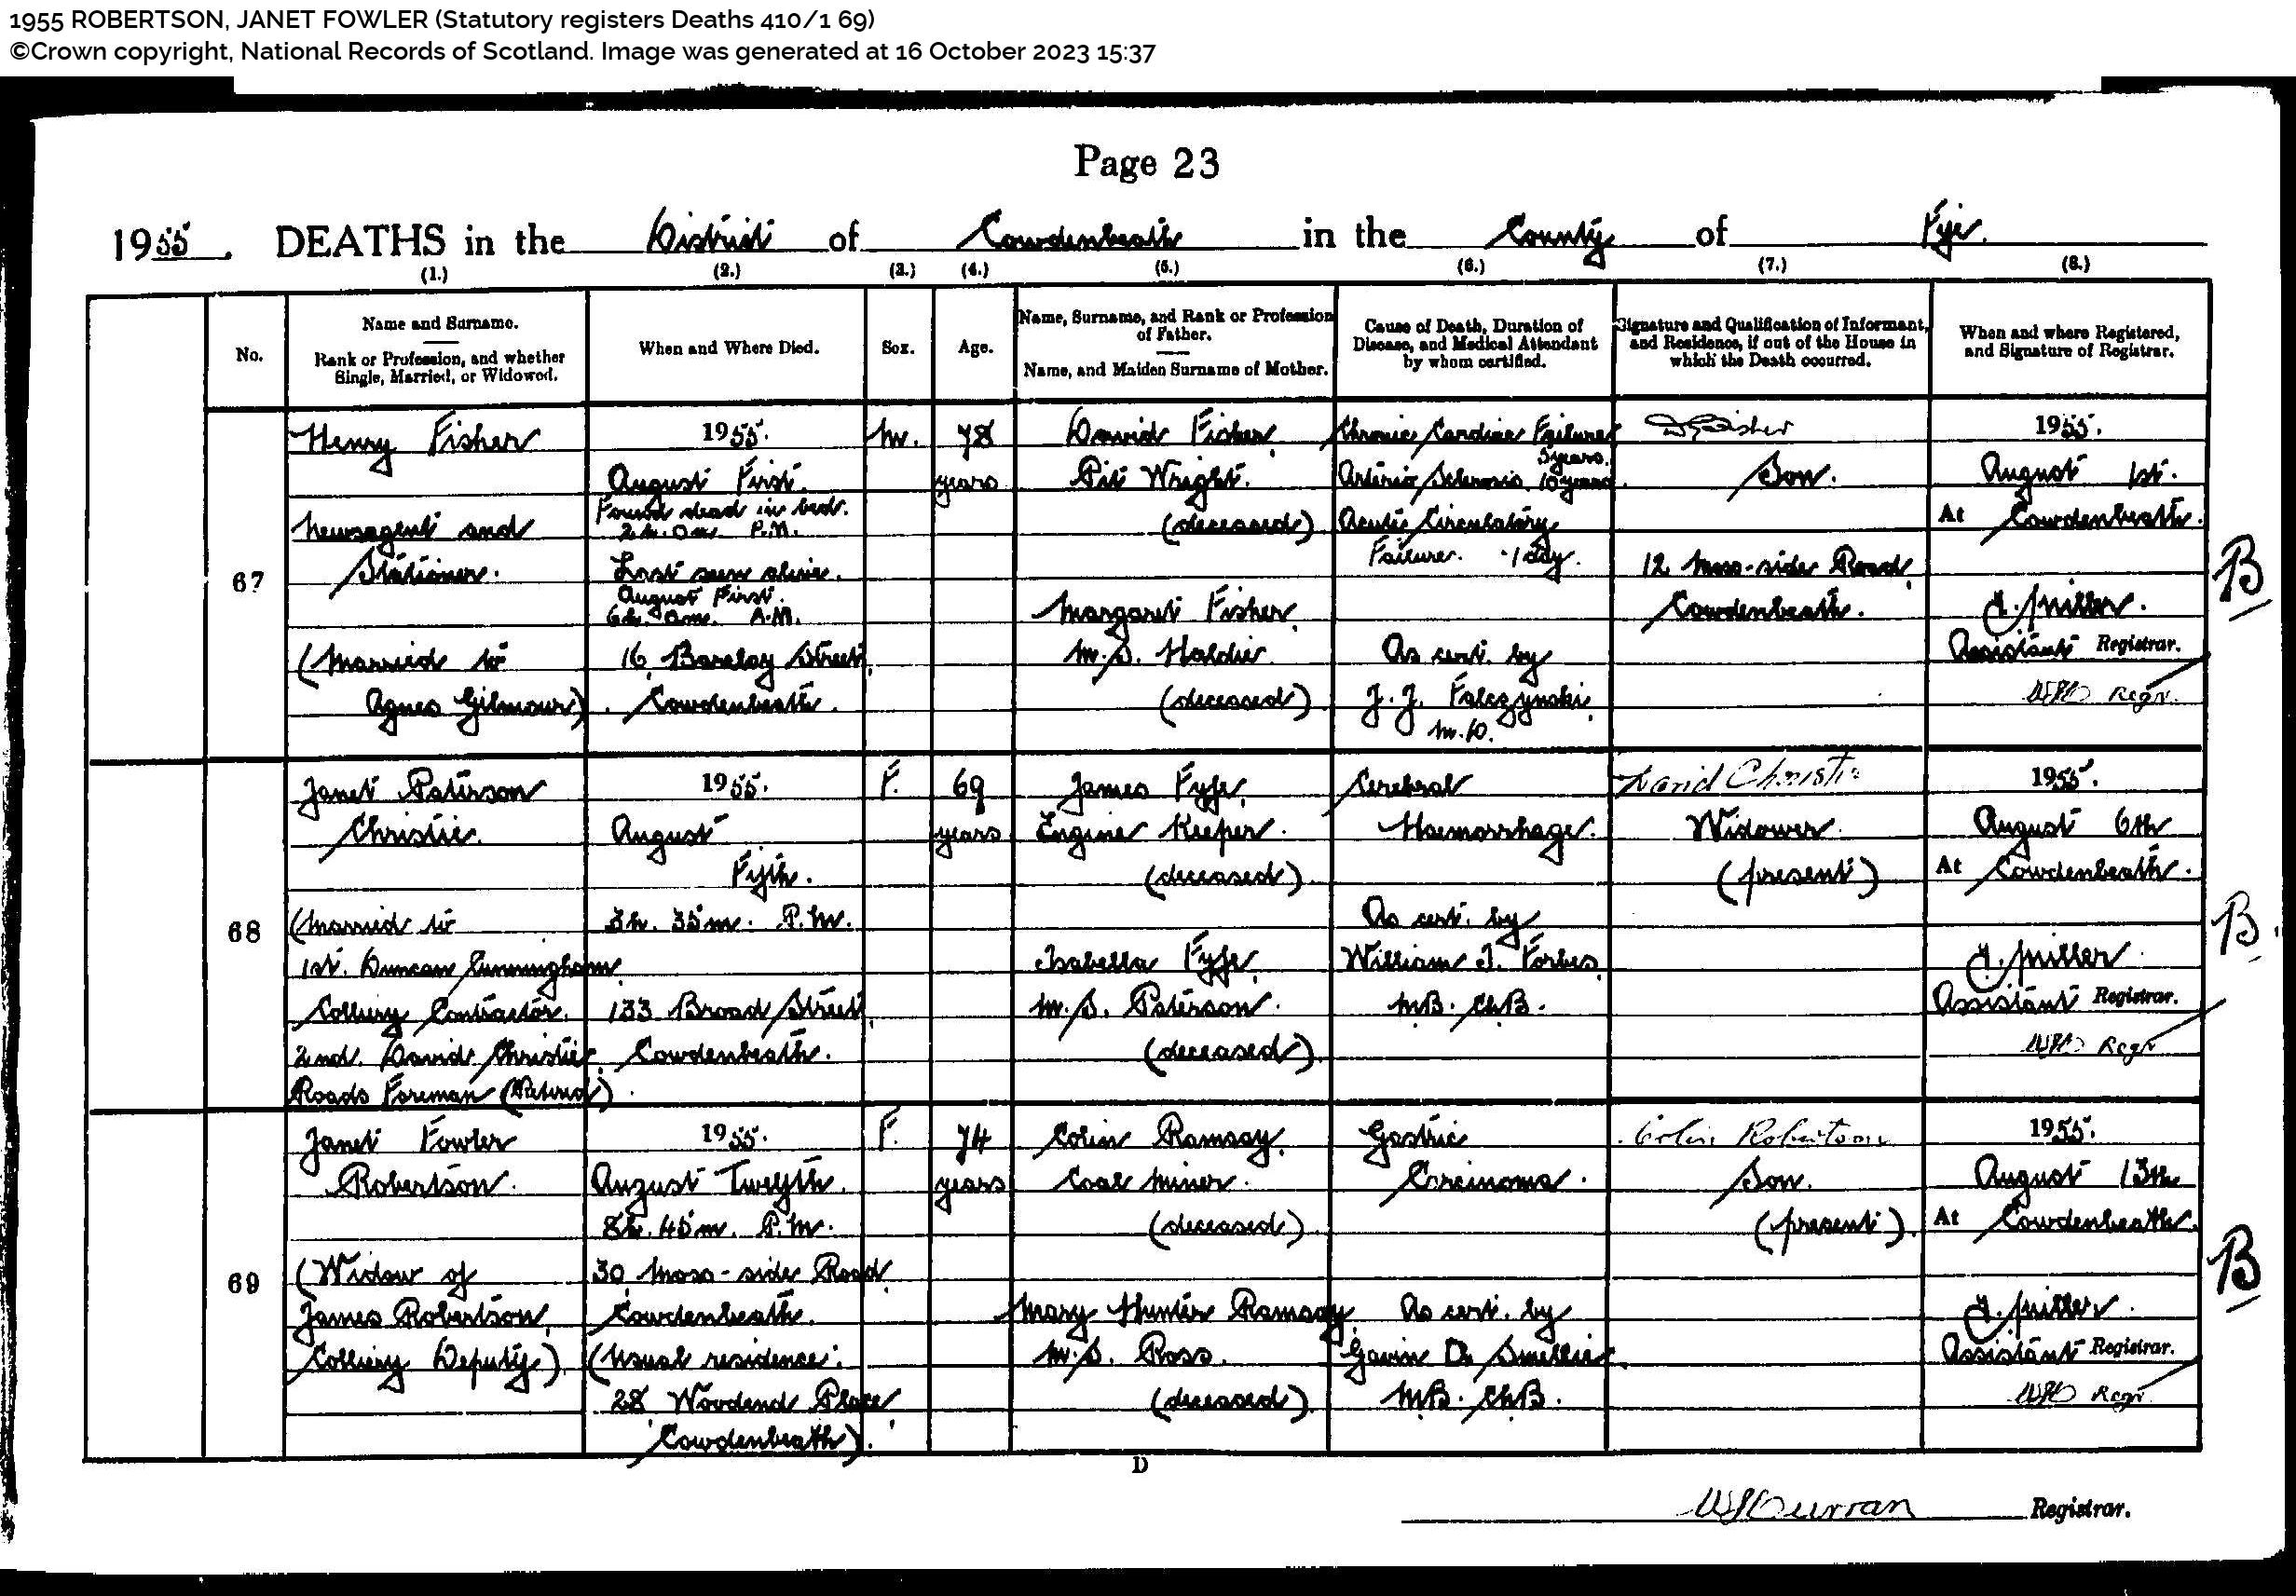 1955 ROBERTSON, JANET FOWLER (Statutory registers Deaths 410/1 69)
©Crown copyright, National Records of Scotland. Image was generated at 16 October 2023 15:37
Page 23
1955. DEATHS in the District of Cowdenbeath in the County of Fife.
(1.) (2.) (3.) (4.) (5.) (6.) (7.) (8.)
No.
Name and Surname.
Rank or Profession, and whether
Single, Married, or Widowed.
When and Where Died.
Sex.
Age.
Name, Surname, and Rank or Profession
of Father.
Name, and Maiden Surname of Mother.
Cause of Death, Duration of
Disease, and Medical Attendant
by whom certified.
Signature and Qualification of Informant,
and Residence, if out of the House in
which the Death occurred.
When and where Registered,
and Signature of Registrar.
67
Henry Fisher
Newsagent and
Stationer.
(Married to
Agnes Gilmour)
1955.
August First.
Found dead in bed.
2h. 0m. P.M.
Last seen alive.
August First.
6h. 0m. A.M.
16, Barclay Street,
Cowdenbeath.
M.
78
years
David Fisher,
Pit Wright.
(deceased)
Margaret Fisher,
M.S. Haldie.
(deceased)
Chronic Cardiac Failure
5 years.
Arterio Sclerosis. 10 years
Acute Circulatory
Failure. 1 day.
As cert. by
J. J. Falczynski,
M.D.
D Fisher
Son.
12 Moss-side Road,
Cowdenbeath.
1955.
August 1st.
At Cowdenbeath.
J. Miller.
Assistant Registrar.
Regr.
B
68
Janet Paterson
Christie.
(Married to
1st. Duncan Cunningham,
Colliery Contractor.
2nd. David Christie,
Roads Foreman (Retired)).
1955.
August
Fifth.
3h. 35m. P.M.
133 Broad Street,
Cowdenbeath.
F.
69
years
James Fyfe,
Engine Keeper.
(deceased).
Isabella Fyfe,
M.S. Paterson.
(deceased).
Cerebral
Haemorrhage.
As cert. by
William J. Forbes,
MB. ChB.
David Christie
Widower.
(present)
1955.
August 6th
At Cowdenbeath.
J. Miller
Assistant Registrar.
Regr
B.
69
Janet Fowler
Robertson.
(Widow of
James Robertson,
Colliery Deputy)
1955.
August Twelfth.
8h. 45m. P.M.
30, Moss-side Road,
Cowdenbeath.
(Usual residence:
28, Woodend Place,
Cowdenbeath).
F.
74
years
Colin Ramsay,
Coal Miner.
(deceased).
Mary Hunter Ramsay,
M.S. Ross.
(deceased)
Gastric
Carcinoma.
As cert. by
Gavin D. Smellie,
MB. ChB.
Colin Robertson
Son.
(present).
1955.
August 13th
At Cowdenbeath.
J. Miller.
Assistant Registrar.
Regr.
B
D
Curran Registrar.